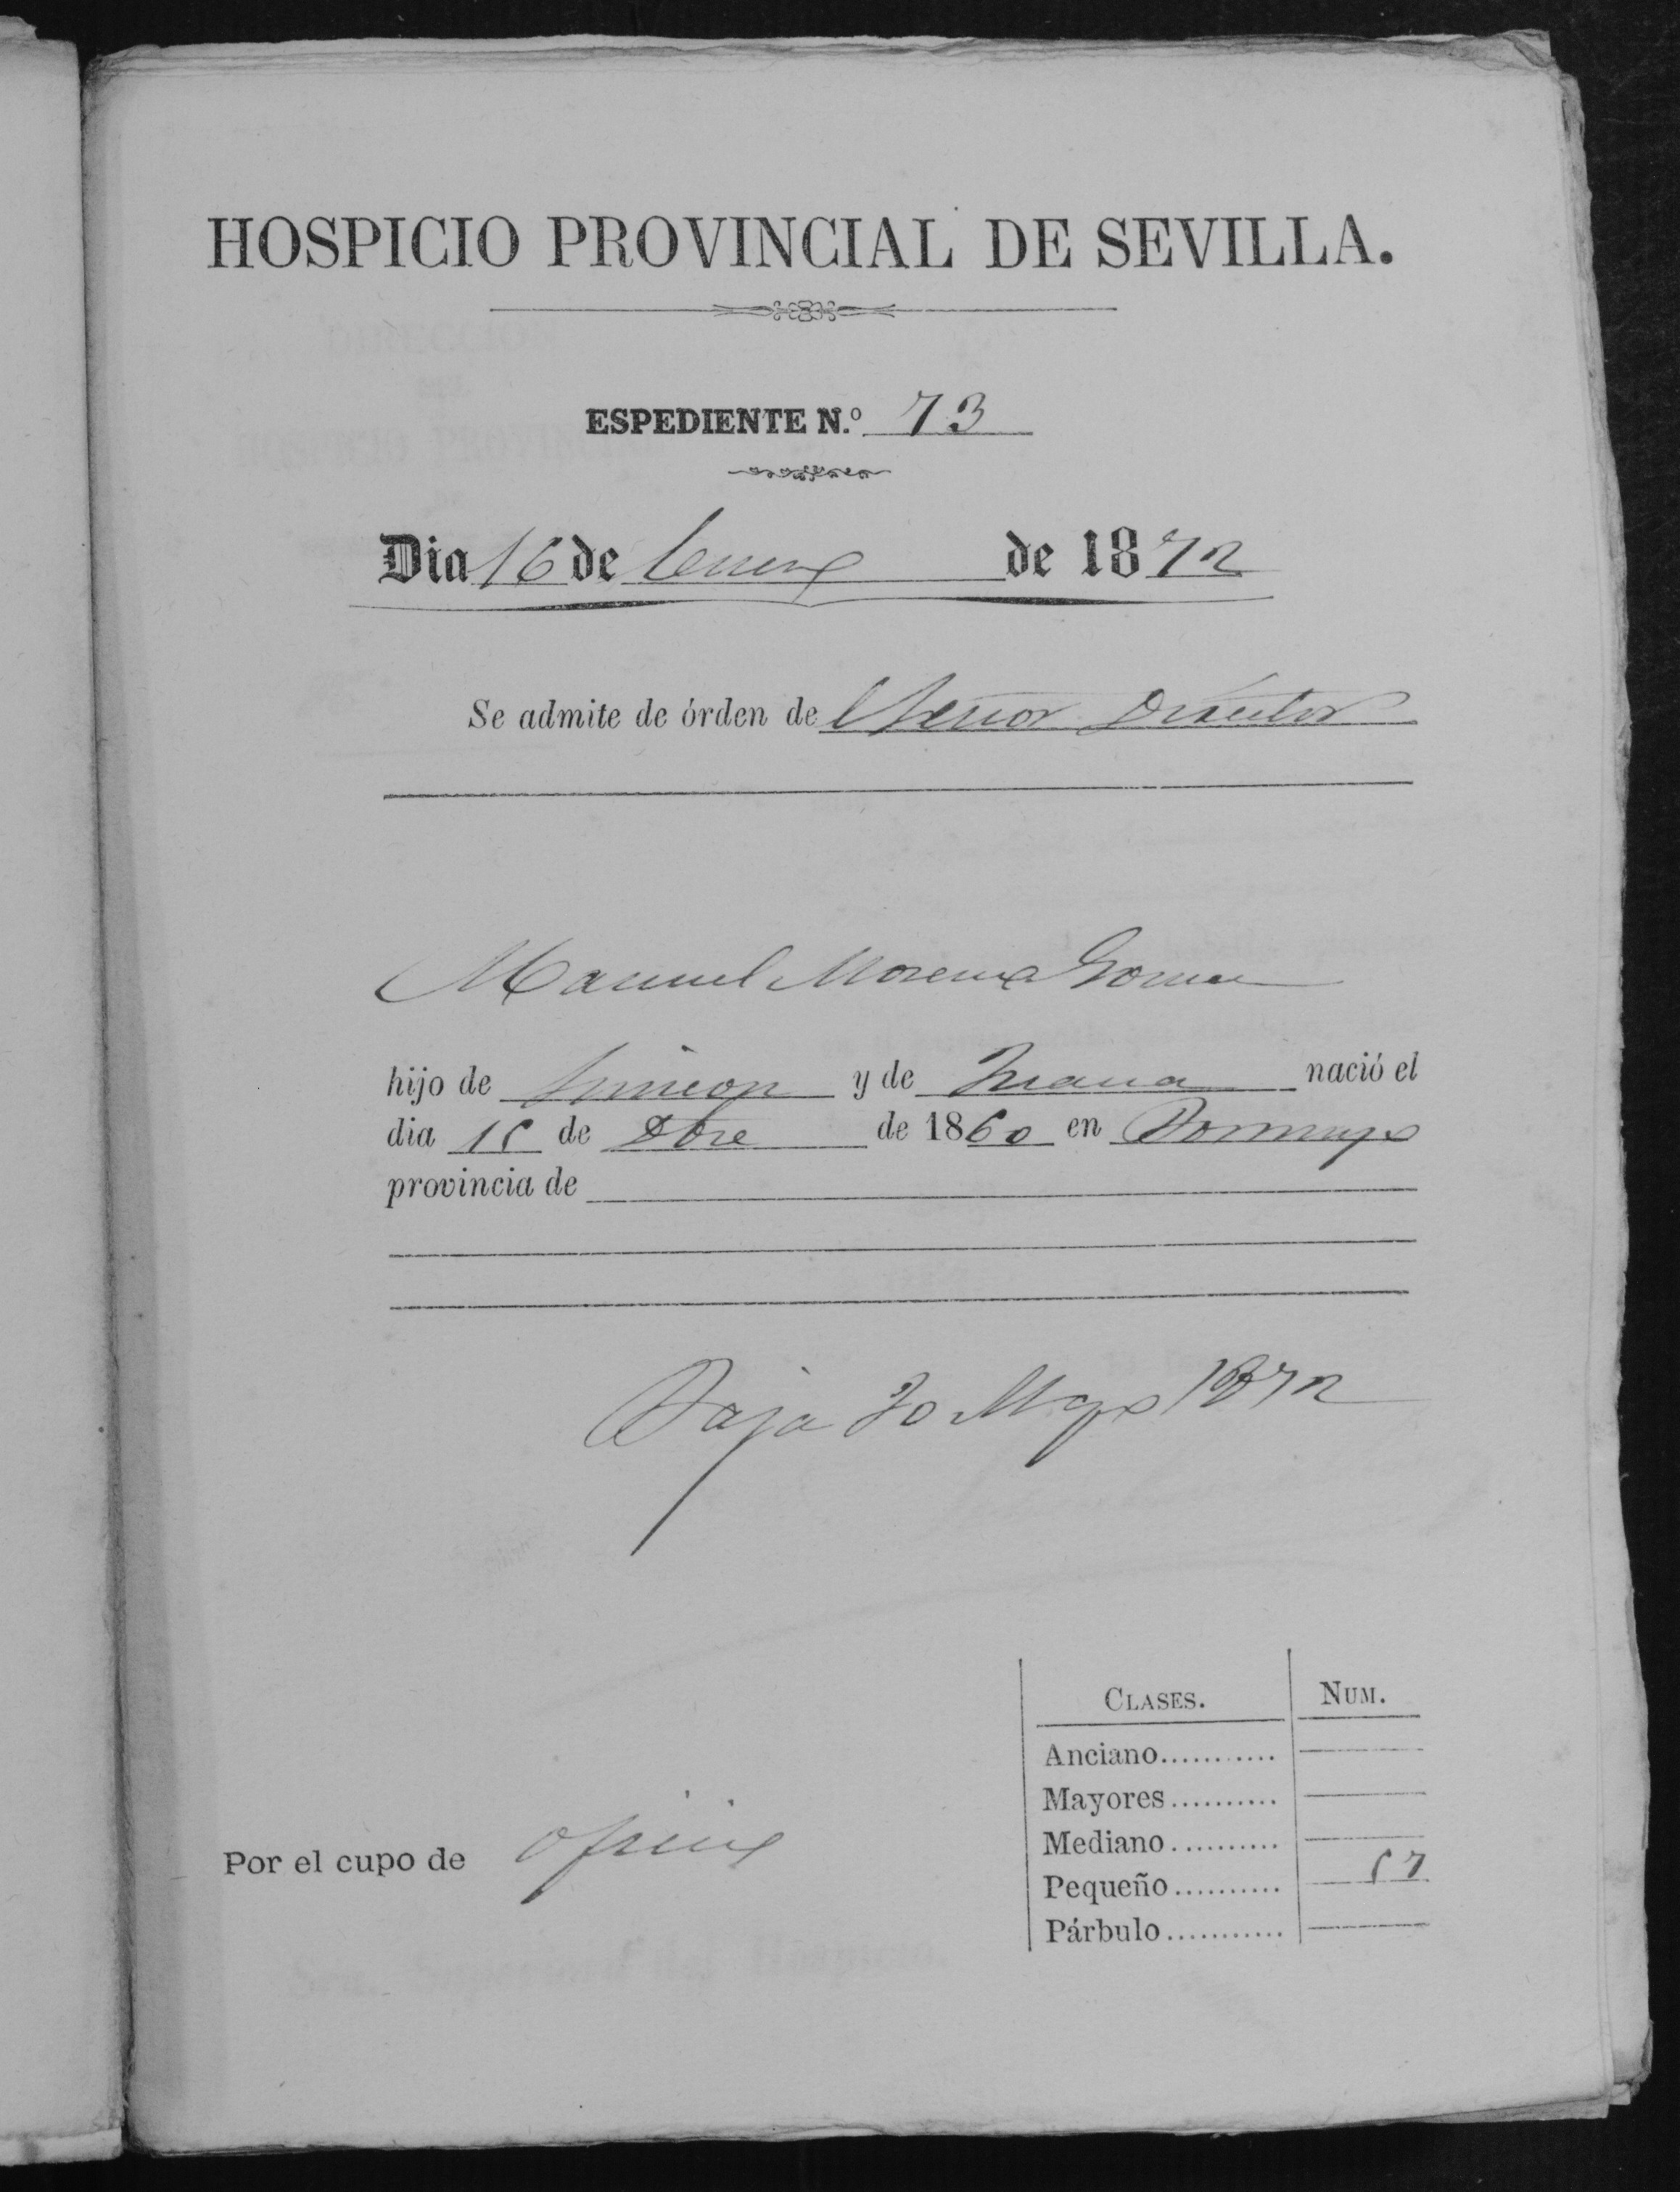 HOSPICIO PROVINCIAL DE SEVILLA.
ESPEDIENTE N.º 73
Dia 16 de Enero de 1872
Se admite de órden de Señor Director
Manuel Moreno Gomez
hijo de Simeon y de Juana nació el
dia 15 de Dbre de 1860 en
provincia de
Baja 20 Myo 1872
CLASES. NUM.
Anciano...........
Mayores..........
Mediano..........
Por el cupo de oficio
Pequeño.......... 57
Párbulo...........